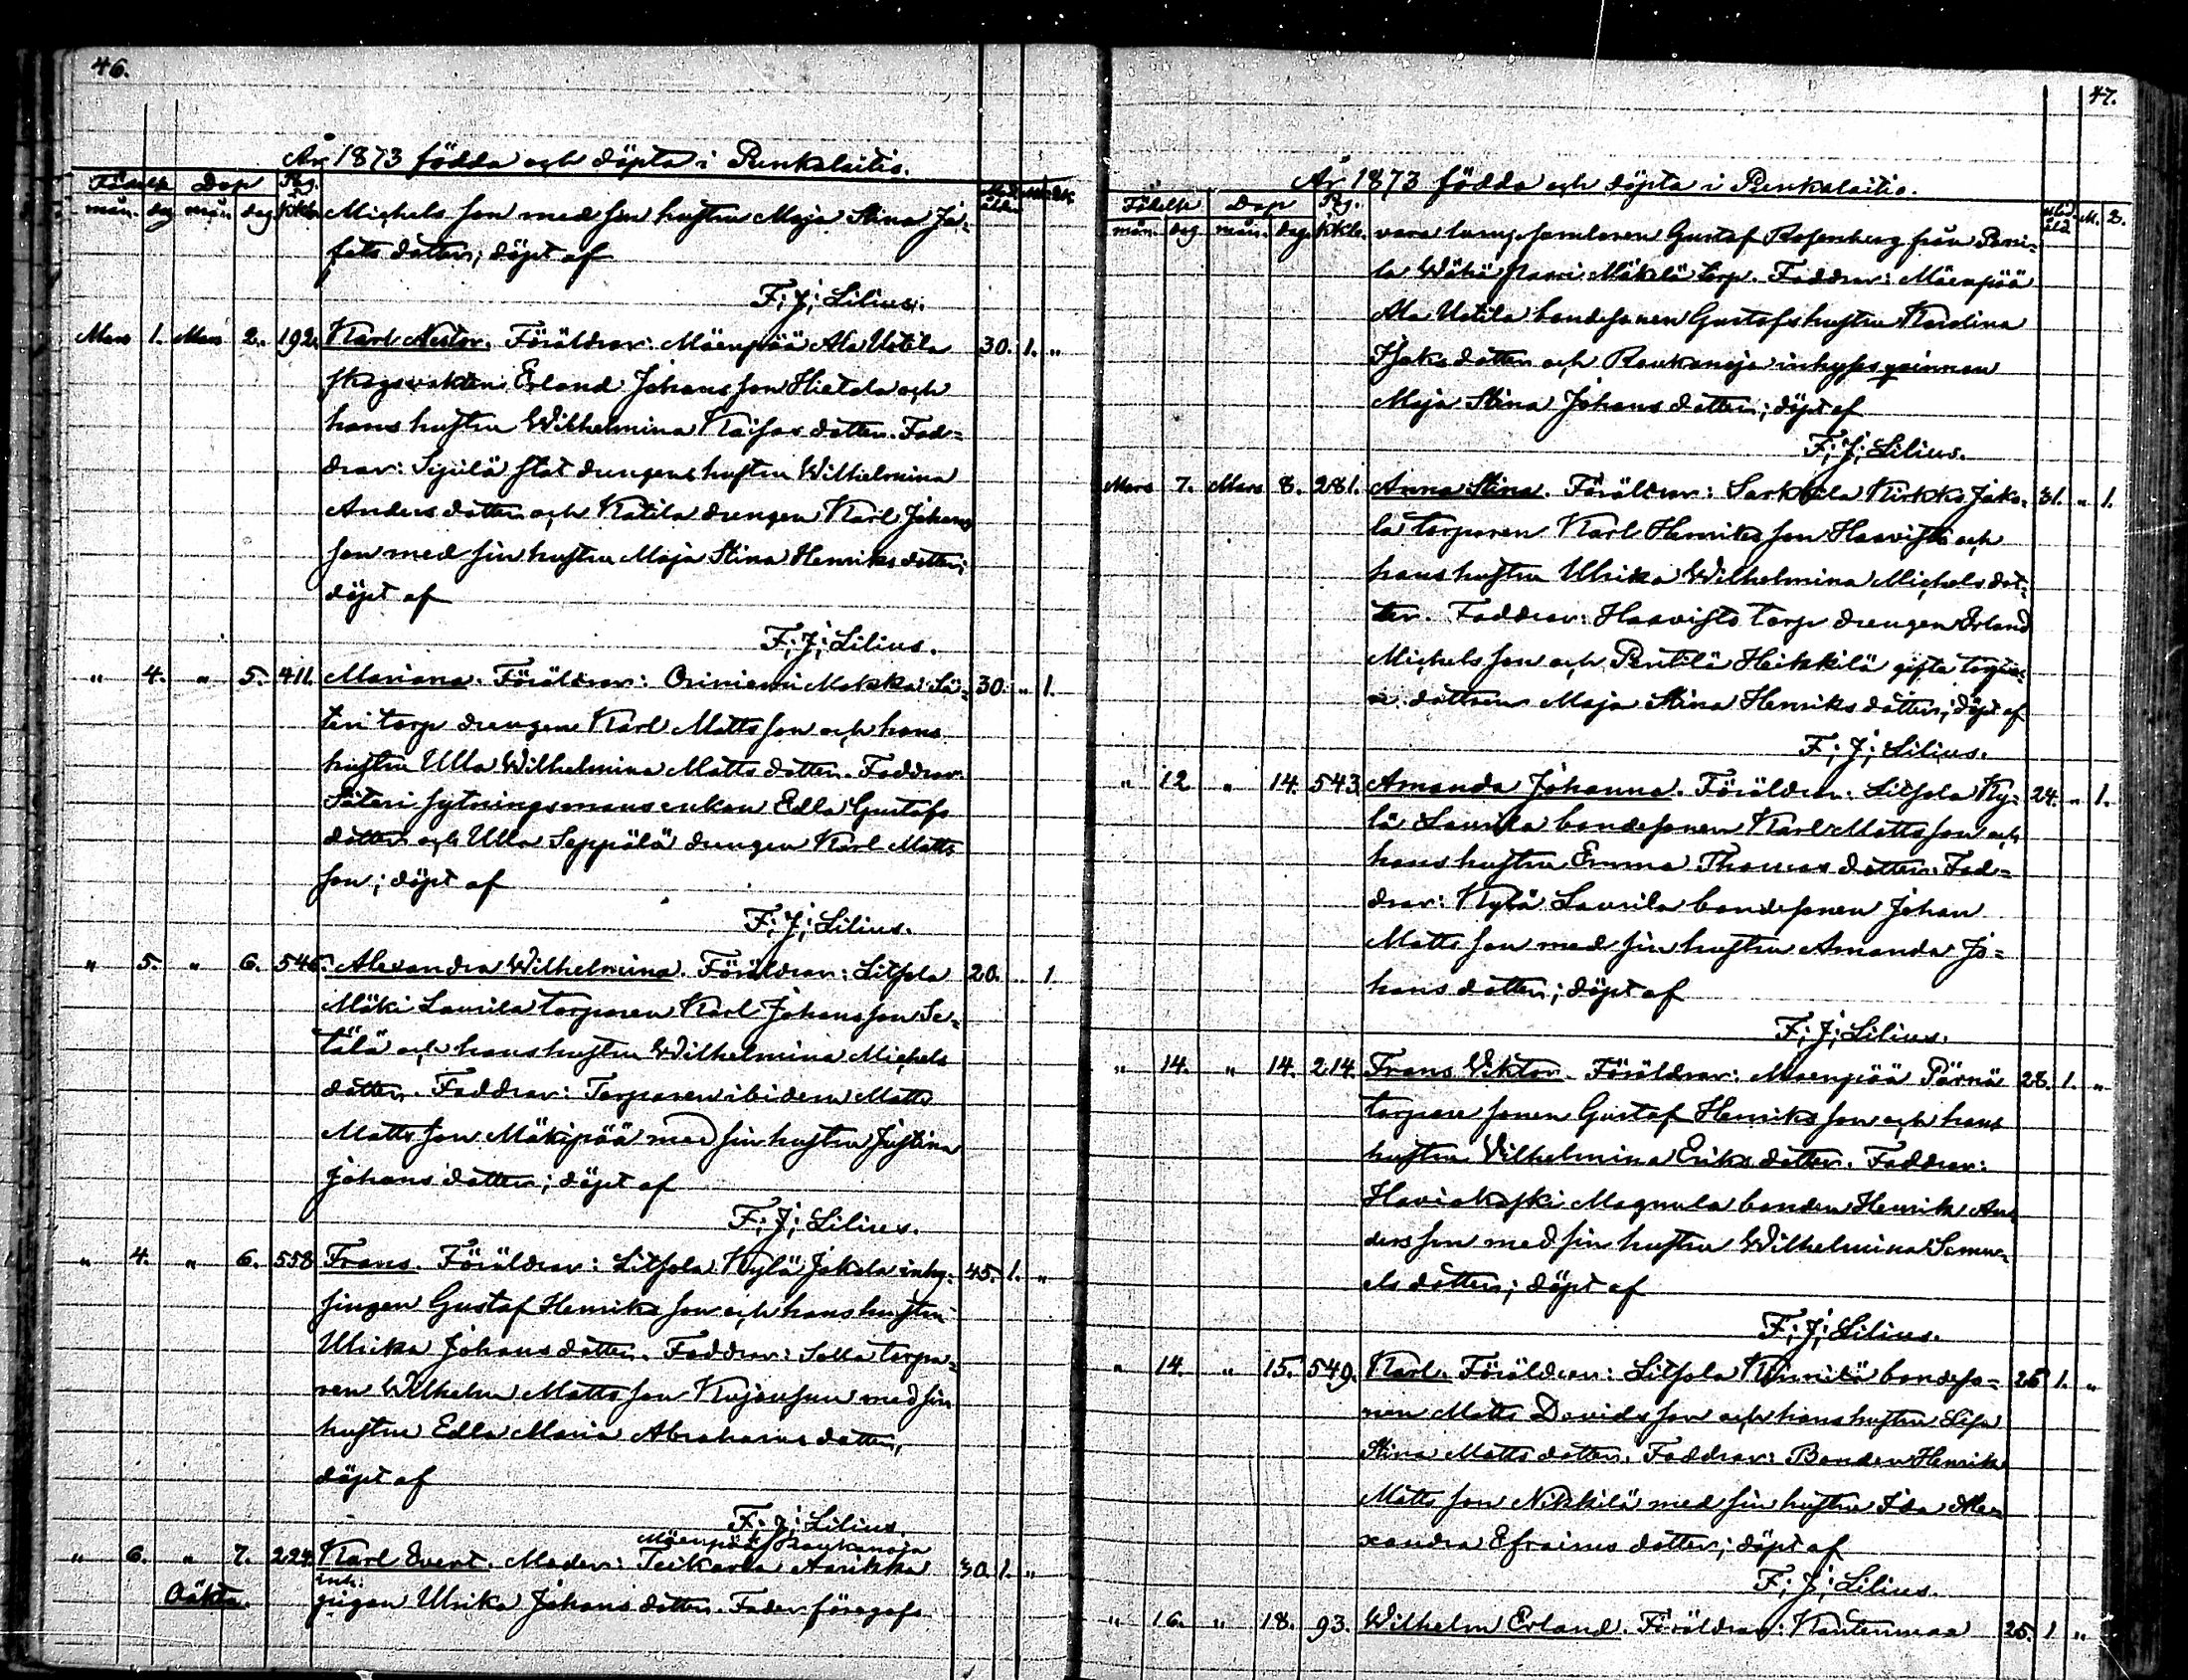 46.
År 1873 födda och döpta i Punkalaitio.
Födelse Dop Pag. i Mod. M. Qk.
mån. dag mån. dag kkb. åld.
Michels son med sin hustru Maja Stina Ja-
fets dotter; döpt af
F; J; Lilius.
Mars 1. Mars 2. 192. Karl Nestor. Föräldrar: Mäenpää Ala Uotila 30. 1. "
skogsvakten Erland Johans son Hietala och
hans hustru Wilhelmina Kaisas dotter. Fad=
drar: Sipilä stat drengens hustru Wilhelmina
Anders dotter och Katila drengen Karl Johans
son med sin hustru Maja Stina Henriks dotter;
döpt af
F; J; Lilius.
" 4. " 5. 411. Mariana. Föräldrar: Oriniemi Makka Sä- 30. " 1.
teri torp drengen Karl Matts son och hans
hustru Ulla Wilhelmina Matts dotter. Faddrar:
Säteri sytningsmans enkan Edla Gustafs
dotter och Ulla Seppälä drengen Karl Matts
son; döpt af
F; J; Lilius.
" 5. " 6. 546. Alexandra Wilhelmina. Föräldrar: Litsola 20. " 1.
Mäki Laurila torparen Karl Johans son Se-
tälä och hans hustru Wilhelmina Michels
dotter. Faddrar: Torparen ibidem Matts
Matts son Mäkipää med sin hustru Justina
Johans dotter; döpt af
F; J; Lilius.
" 4. " 6. 558 Frans. Föräldrar: Litsola Kylä Jakola inhy- 45. 1. "
singen Gustaf Henriks son och hans hustru
Ulrika Johans dotter. Faddrar: Salla torpa-
ren Wilhelm Matts son Kujansuu med sin
hustru Edla Maria Abrahams dotter,
döpt af
F; J; Lilius.
Mäenpää Raukanoja
" 6. " 7. 224. Karl Evert. Moder: Teikarla Aarikka 30. 1. "
inh:
Oäkta. pigan Ulrika Johans dotter. Fader föregafs
47.
År 1873 födda och döpta i Punkalaitio.
Födelse Dop Pag. i Mod. M. Q.
mån. dag mån. dag. kkb. åld.
vara lumpsamlaren Gustaf Rosenberg från Puni-
la Wähä Mäkilä torp. Faddrar: Mäenpää
Ala Uotila bondesonen Gustafs hustru Karolina
Isaks dotter och Raukanoja inhyses qvinnan
Maja Stina Johans dotter; döpt af
F; J; Lilius.
Mars 7. Mars 8. 281. Anna Stina. Föräldrar: Sarkkila Kirkko Jako- 31. " 1.
la torparen Karl Henriks son Haavisto och
hans hustru Ulrika Wilhelmina Michels dot-
ter. Faddrar: Haavisto torp drengen Erland
Michels son och Pentilä Heikkilä gifta torpa-
re dottren Maja Stina Henriks dotter; döpt af
F; J; Lilius.
" 12 " 14. 543. Amanda Johanna. Föräldrar: Litsola Ky- 24. " 1.
lä Laurila bondesonen Karl Matts son och
hans hustru Emma Thomas dotter. Fad=
drar: Kylä Laurila bondesonen Johan
Matts son med sin hustru Amanda Jo=
hans dotter; döpt af
F; J; Lilius.
" 14. " 14. 214. Frans Viktor. Föräldrar: Maenpää Pärnä 28. 1. "
torpare sonen Gustaf Henriks son och hans
hustru Vilhelmina Eriks dotter. Faddrar:
Haviokoski Magnula bonden Henrik An-
ders son med sin hustru Wilhelmina Samu-
els dotter; döpt af
F; J; Lilius.
" 14. " 15. 549. Karl. Föräldrar: Litsola Kinnilä bondeso= 26 1. "
nen Matts Davids son och hans hustru Lisa
Stina Matts dotter. Faddrar: Bonden Henrik
Matts son Nikkilä med sin hustru Ida Ale-
xandra Efraims dotter; döpt af
F; J; Lilius.
" 16. " 18. 93. Wilhelm Erland. Föräldrar: Kantenmaa 25. 1 "